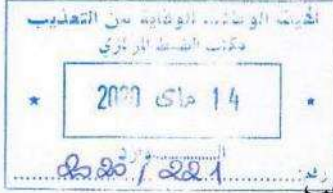 الهيئة الوطنية للوقاية من التعذيب
مكتب الضبط المركزي
14 ماي 2020
الـــوارد
رقم: 2020/221